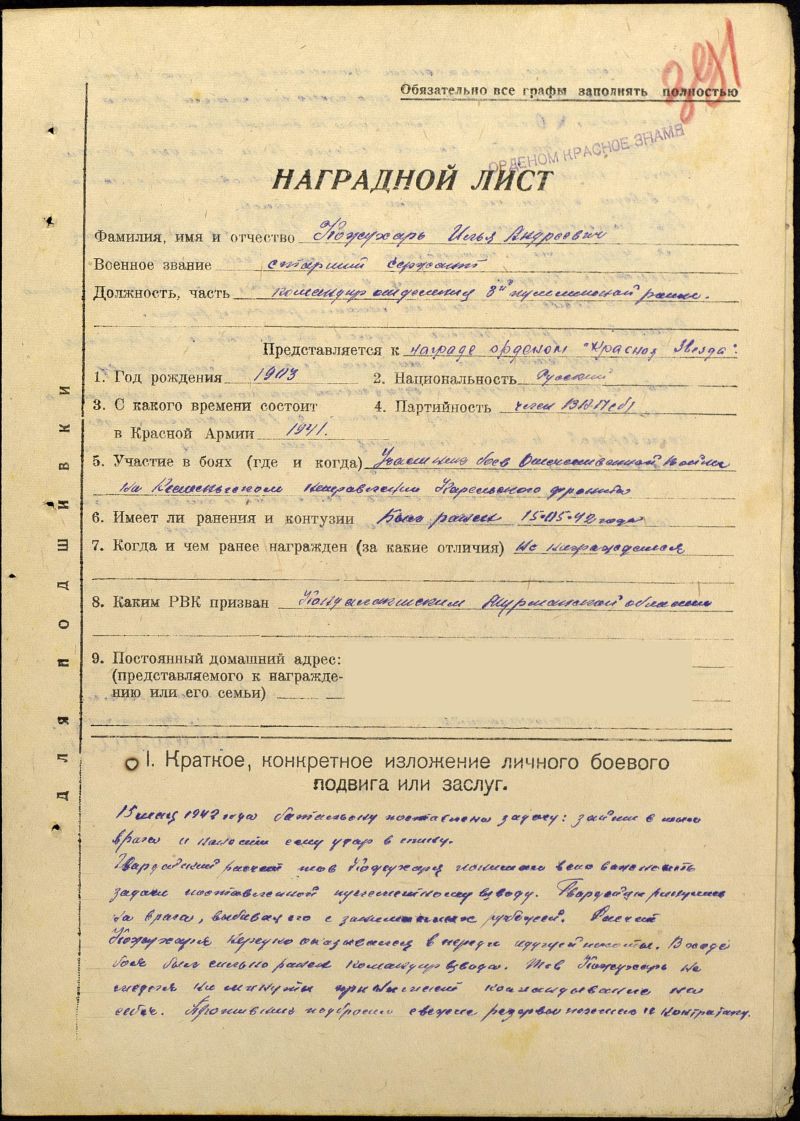 391
Обязательно все графы заполнять полностью
ОРДЕНОМ КРАСНОЕ ЗНАМЯ
НАГРАДНОЙ ЛИСТ
Фамилия, имя и отчество Кожухарь Илья Андреевич
Военное звание старший сержант
Должность, часть командир отделения 8й пулеметной роты.
Представляется к награде орденом "Красная Звезда".
1. Год рождения 1903 2. Национальность Русский
3. С какого времени состоит 4. Партийность член ВКП(б)
в Красной Армии 1941.
5. Участие в боях (где и когда) Участник боев Отечественной войны
на Кестеньгском направлении Карельского фронта
6. Имеет ли ранения и контузии Был ранен 15.05.42 года
7. Когда и чем ранее награжден (за какие отличия) не награждался
8. Каким РВК призван Кандалакшским Мурманской области
9. Постоянный домашний адрес:
(представляемого к награжде-
нию или его семьи)
I. Краткое, конкретное изложение личного боевого
подвига или заслуг.
15 мая 1942 года батальону поставлена задача: зайти в тыл
врага и нанести ему удар в спину.
Гвардейский расчет тов Кожухаря понимал всю важность
задачи поставленной пулеметному взводу. Гвардейцы ринулись
на врага, выбивая его с занимаемых рубежей. Расчет
Кожухаря оказывался впереди идущей пехоты. В ходе
боя был сильно ранен командир взвода. Тов Кожухарь не
медля ни минуты принимает командование на
себя. Противник подбросил свежие резервы перешел в контратаку.
ДЛЯ ПОДШИВКИ